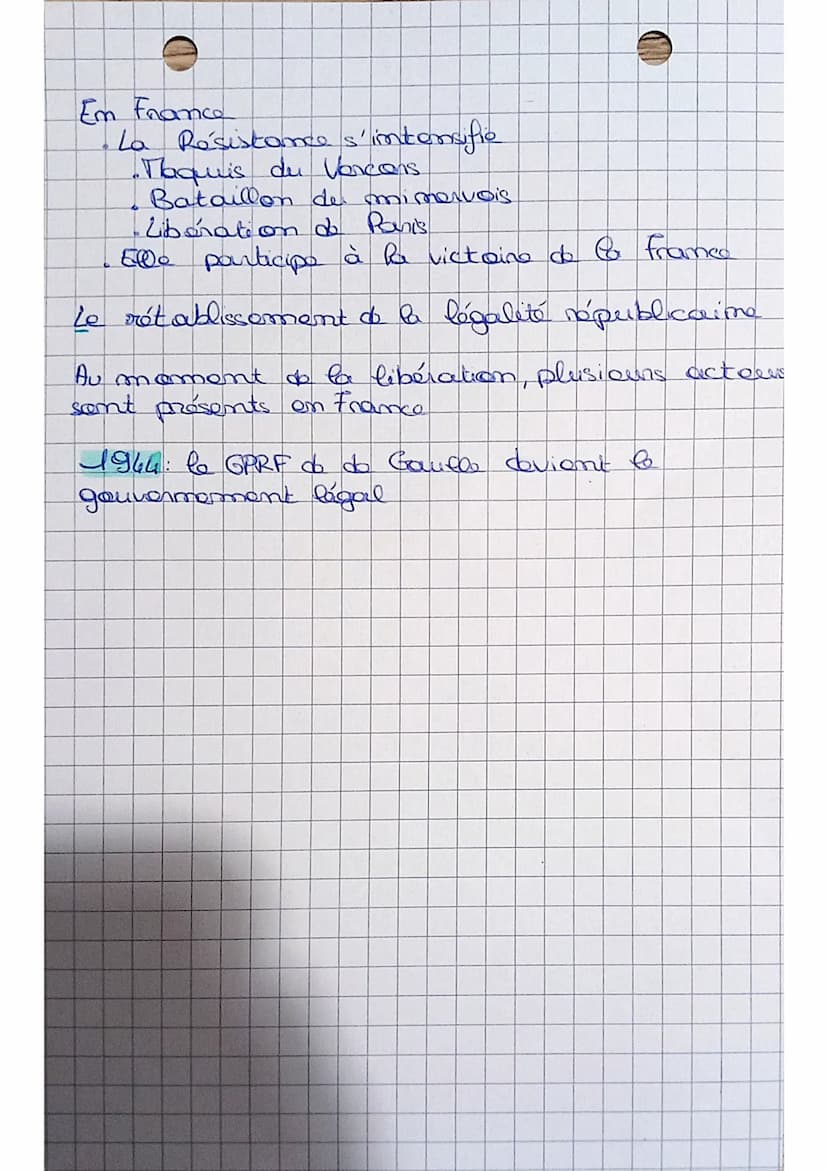 En France
. La Résistance s'intensifie
. Maquis du Vercors
. Bataillon de minervois
. Libération de Paris
. Elle participe à la victoire de la france
Le rétablissement de la légalité républicaine
Au moment de la libération, plusieurs acteurs
sont présents en France
1944 : le GPRF de de Gaulle devient le
gouvernement légal